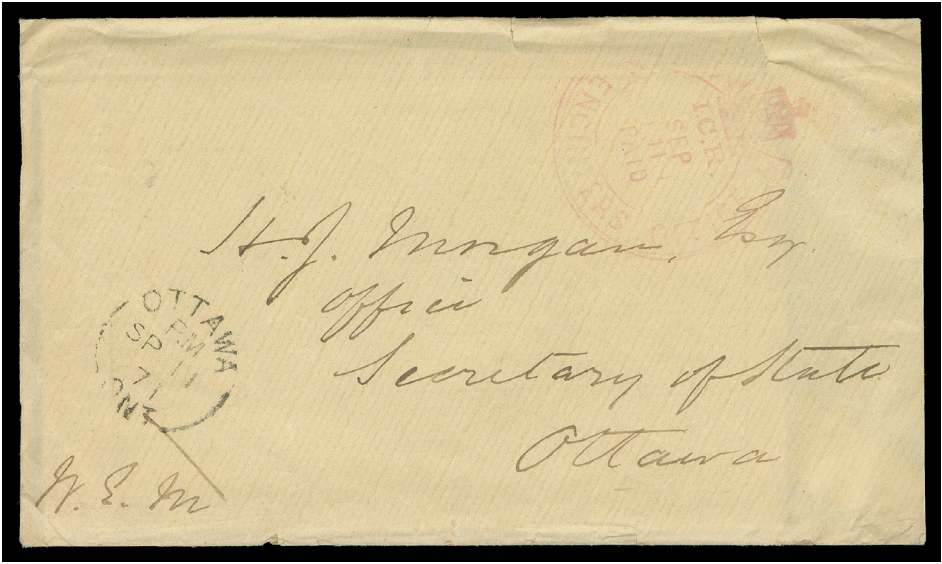 I.C.R.
SEP
11
PAID
H. J. Morgan, Esq.
Office
Secretary of State
Ottawa
OTTAWA
PM
SP 11
71
ONT
W. E. M